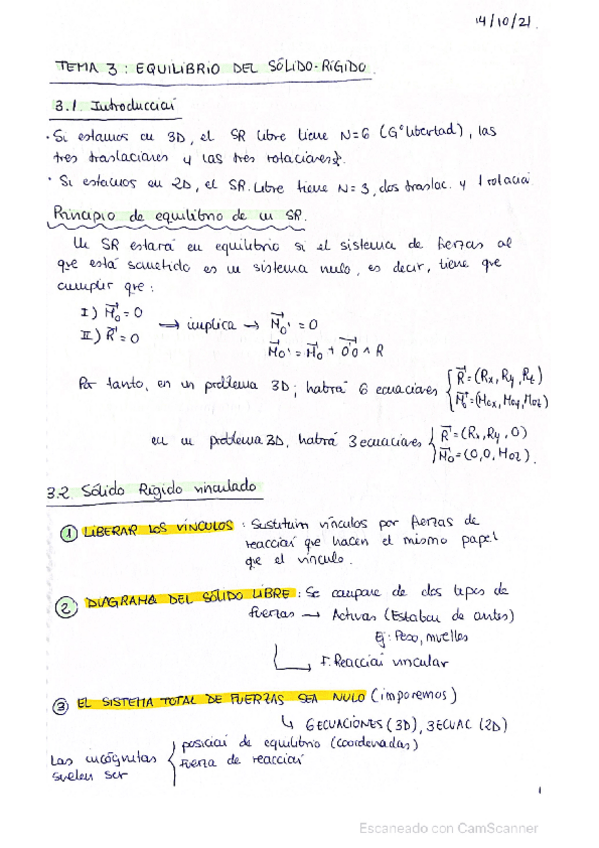 14/10/21.
TEMA 3: EQUILIBRIO DEL SÓLIDO-RÍGIDO.
3.1. Introducción
· Si estamos en 3D, el SR libre tiene N=6 (Gº libertad), las
tres traslaciones y las tres rotaciones.
· Si estamos en 2D, el SR. libre tiene N=3, dos traslac. y 1 rotación.
Principio de equilibrio de un SR.
Un SR estará en equilibrio si el sistema de fuerzas al
que está sometido es un sistema nulo, es decir, tiene que
cumplir que:
I) M⃗o = 0
II) R⃗ = 0
→ implica → M⃗o' = 0
M⃗o' = M⃗o + O'O⃗ ∧ R
Por tanto, en un problema 3D; habrá 6 ecuaciones { R⃗ = (Rx, Ry, Rz)
M⃗o = (Mox, Moy, Moz)
en un problema 2D, habrá 3 ecuaciones { R⃗ = (Rx, Ry, 0)
M⃗o = (0, 0, Moz).
3.2. Sólido Rígido vinculado
1 LIBERAR LOS VÍNCULOS: Sustituim vínculos por fuerzas de
reacción que hacen el mismo papel
que el vínculo.
2 DIAGRAMA DEL SÓLIDO LIBRE: Se compone de dos tipos de
fuerzas → Activas (Estaban de antes)
Ej: Peso, muelles
F. Reacción vincular
3 EL SISTEMA TOTAL DE FUERZAS SEA NULO (imponemos)
↳ 6 ECUACIONES (3D), 3 ECUAC (2D)
Las incógnitas
suelen ser
{ posición de equilibrio (coordenadas)
fuerza de reacción
1
Escaneado con CamScanner